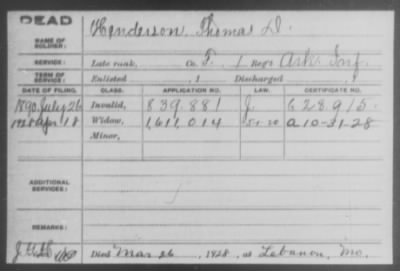 DEAD
NAME OF SOLDIER: Henderson, Thomas D.
SERVICE: Late rank, Co. F, 1 Reg't Ark. Inf.
TERM OF SERVICE: Enlisted , 1 Discharged , 1
DATE OF FILING. CLASS. APPLICATION NO. LAW. CERTIFICATE NO.
1890 July 26 Invalid, 839.881 J. 628.915.
1928 Apr 18 Widow, 1,611,014 5-1-20 A 10-31-28
Minor,
ADDITIONAL SERVICES:
REMARKS:
Died Mar 26, 1928, at Lebanon, Mo.